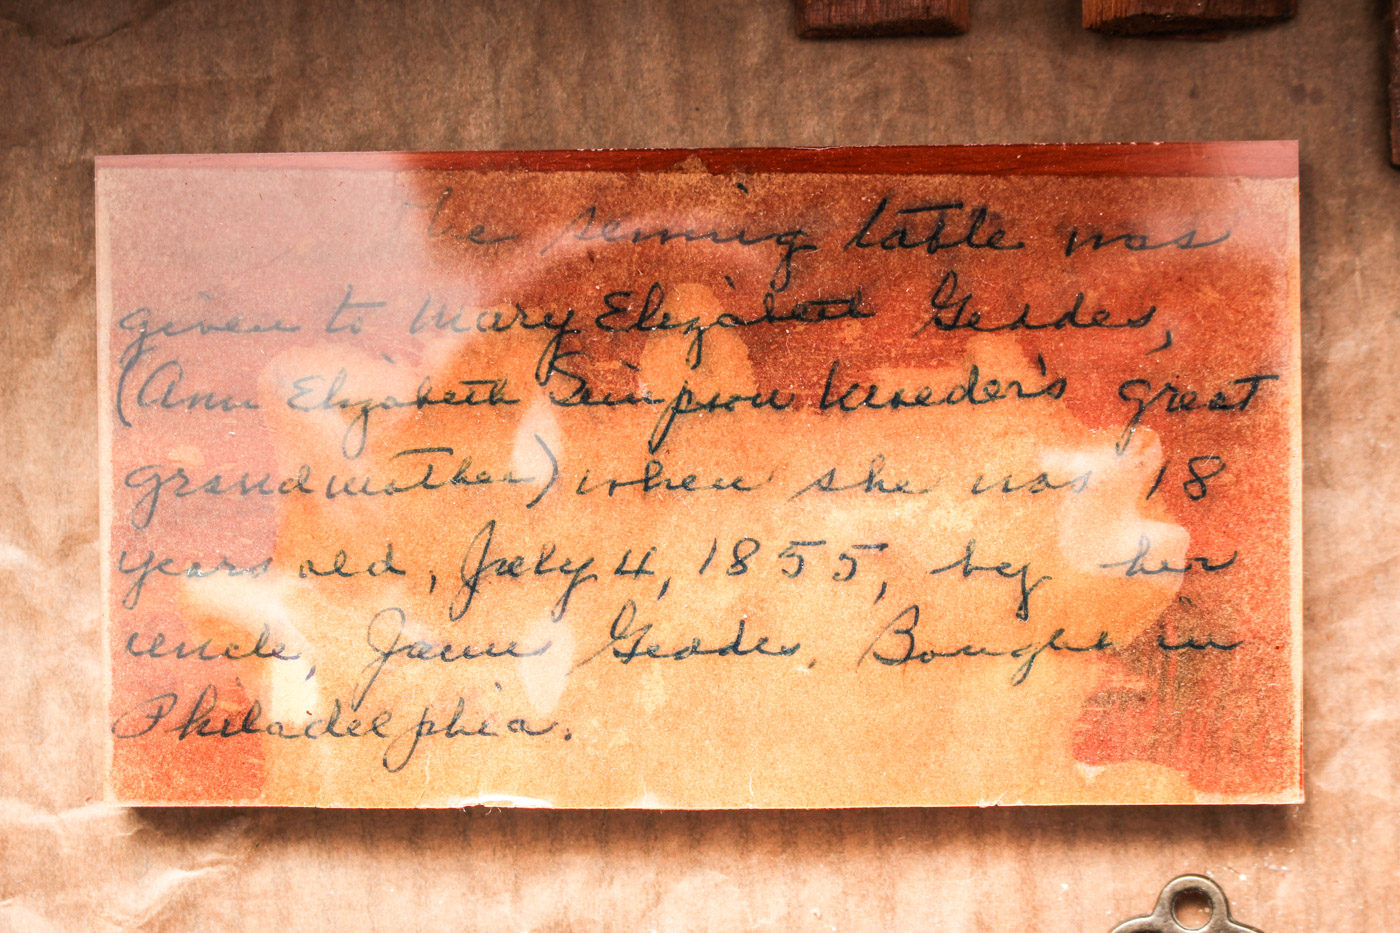 The sewing table was
given to Mary Elizabeth Geddes,
(Ann Elizabeth Simpson great
grandmother) when she was 18
years old, July 4, 1855, by her
uncle, James Geddes. Bought in
Philadelphia.